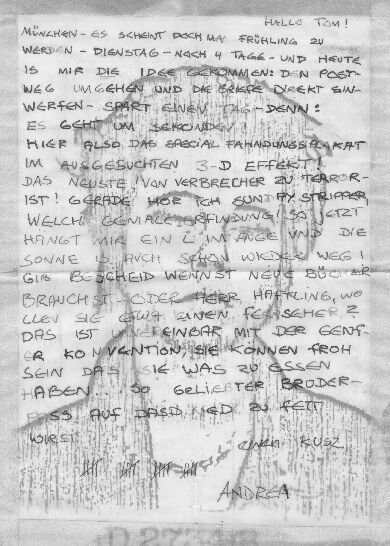 HALLO TOM!
MÜNCHEN - ES SCHEINT DOCH MAL FRÜHLING ZU
WERDEN - DIENSTAG - NOCH 4 TAGE - UND HEUTE
IS MIR DIE IDEE GEKOMMEN: DEN POST-
WEG UMGEHEN UND DIE BRIEFE DIREKT EIN-
WERFEN - SPART EINEN TAG - DENN:
ES GEHT UM SEKUNDEN!
HIER ALSO DAS SPECIAL FAHNDUNGSPLAKAT
IM AUSGESUCHTEN 3-D EFFEKT!
DAS NEUSTE! VON VERBRECHER ZU TERROR-
IST! GERADE HÖR ICH SUNDAY STRIPPER,
WELCH GENIALE ERFINDUNG! SO JETZT
HÄNGT MIR EIN L IM AUGE UND DIE
SONNE IS AUCH SCHON WIEDER WEG!
GIB BESCHEID WENNST NEUE BÜCHER
BRAUCHST - ODER HERR HÄFTLING, WO
LLEN SIE ETWA EINEN FERNSEHER?
DAS IST UNVEREINBAR MIT DER GENF-
ER KONVENTION, SIE KÖNNEN FROH
SEIN DAS SIE WAS ZU ESSEN
HABEN. SO GELIEBTER BRUDER-
PASS AUF DASD NED ZU FETT
WIRST
EINEN KUSZ
ANDREA